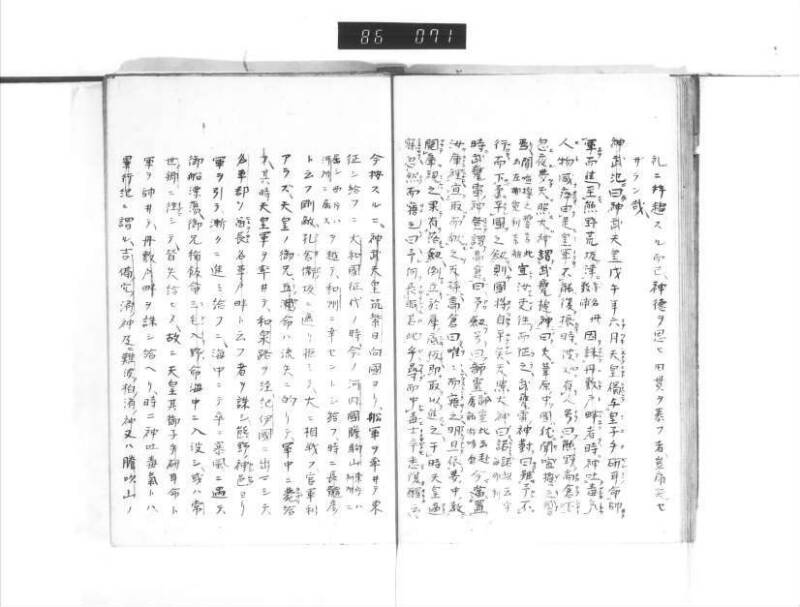 86 071
礼ニ拝趨スル而已神徳ヲ思ヒ旧貫ヲ慕フ者豈帰矣セ
ザラン哉
神武紀曰神武天皇戊午年六月天皇獨与皇子手研耳命帥
軍而進至熊野荒坂津因誅丹敷戸畔者時神吐毒気
人物咸瘁由是皇軍不能復振時彼処有人号曰熊野高倉下
忽夜夢天照大神謂武甕雷神曰夫葦原中国猶聞喧擾之響
宜汝更往而征之武甕雷神対曰雖予不
行而下予平国之剣則国将自平矣天照大神曰諾
時武甕雷神謂高倉曰予剣号曰韴霊今当置
汝庫裡宜取而献之天孫高倉曰唯々而寤之明旦依夢中教
開庫視之果有落剣倒立於庫底板即取以進之于時天皇適
寐忽然而寤之曰予何長眠若此乎尋而中毒士卒悉復醒
今按スルニ神武天皇筑紫日向國ヨリ舩軍ヲ率井テ東
征シ給フニ大和國征代ノ時今ノ河内國膽駒山
ヲ越テ和州ニ幸セントシ給フ時ニ長髓彦
ト云フ剛敵孔舎衛坂ニ遮リ拒ミテ大ニ相戦フ官軍利
アラズ天皇ノ御兄五瀬命ハ流矢ニ的リテ軍中ニ薨給
フ其時天皇軍ヲ率井テ和泉路ヲ経紀伊國ニ出マシテ
名草郡ノ酋長名草戸畔ト云フ者ヲ誅シ熊野神邑ヨリ
軍ヲ引テ漸クニ進ミ給フニ海中ニテ卒ニ暴風ニ遇テ
御船漂蕩御兄稲飯命三毛入野命海中ニ入没シ或ハ常
世郷ニ徃シテ皆失給ヒヌ故ニ天皇其御子手研耳命ト
軍ヲ帥井テ丹敷戸畔ヲ誅シ給ヘリ時ニ神吐毒気トハ
景行紀ニ謂ル吉備穴済神及難波柏済ノ神又ハ膽吹山ノ